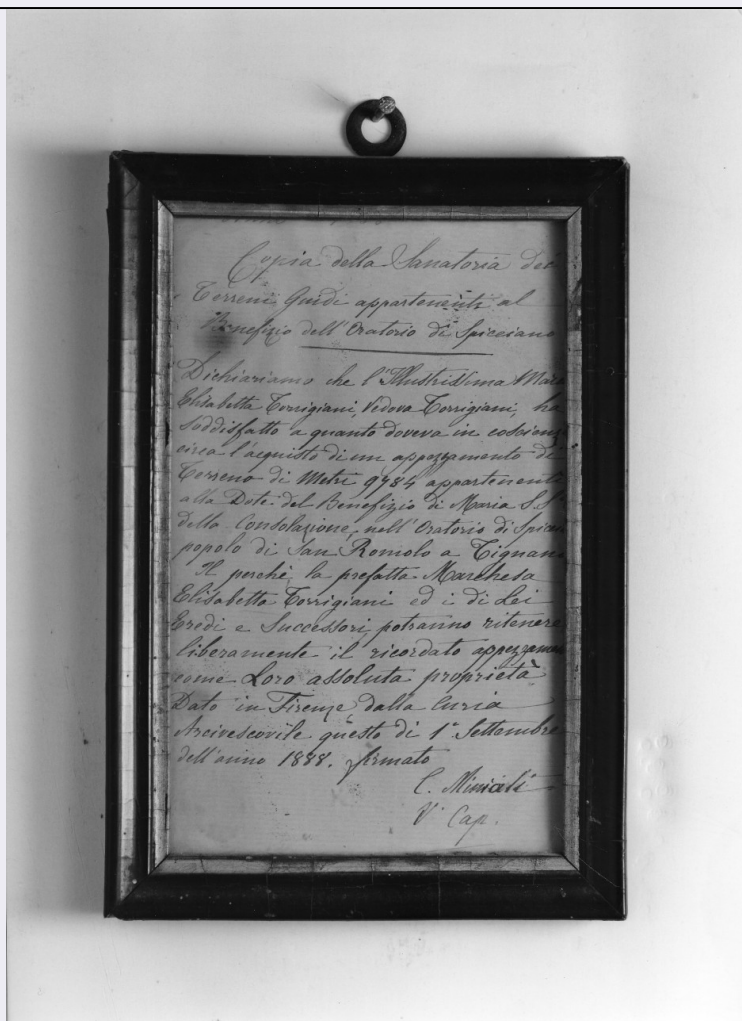 Copia della Sanatoria dei
Terreni Guidi appartenenti al
Benefizio dell'Oratorio di Spicciano
Dichiariamo che l'Illustrissima Mar
Elisabetta Torrigiani, Vedova Torrigiani, ha
soddisfatto a quanto doveva in coscienz
circa l'acquisto di un appezzamento di
Terreno di Metri 9784 appartenent
alla Dote del Benefizio di Maria S.S.
della Consolazione, nell'Oratorio di Spicci
popolo di San Romolo a Tignan
Il perchè, la prefatta Marchesa
Elisabetta Torrigiani ed i di Lei
Eredi e Successori potranno ritenere
liberamente il ricordato appezzamen
come Loro assoluta proprietà
Dato in Firenze dalla Curia
Arcivescovile questo dì 1° Settembre
dell'anno 1888. firmato
C. Miniati
V. Cap.